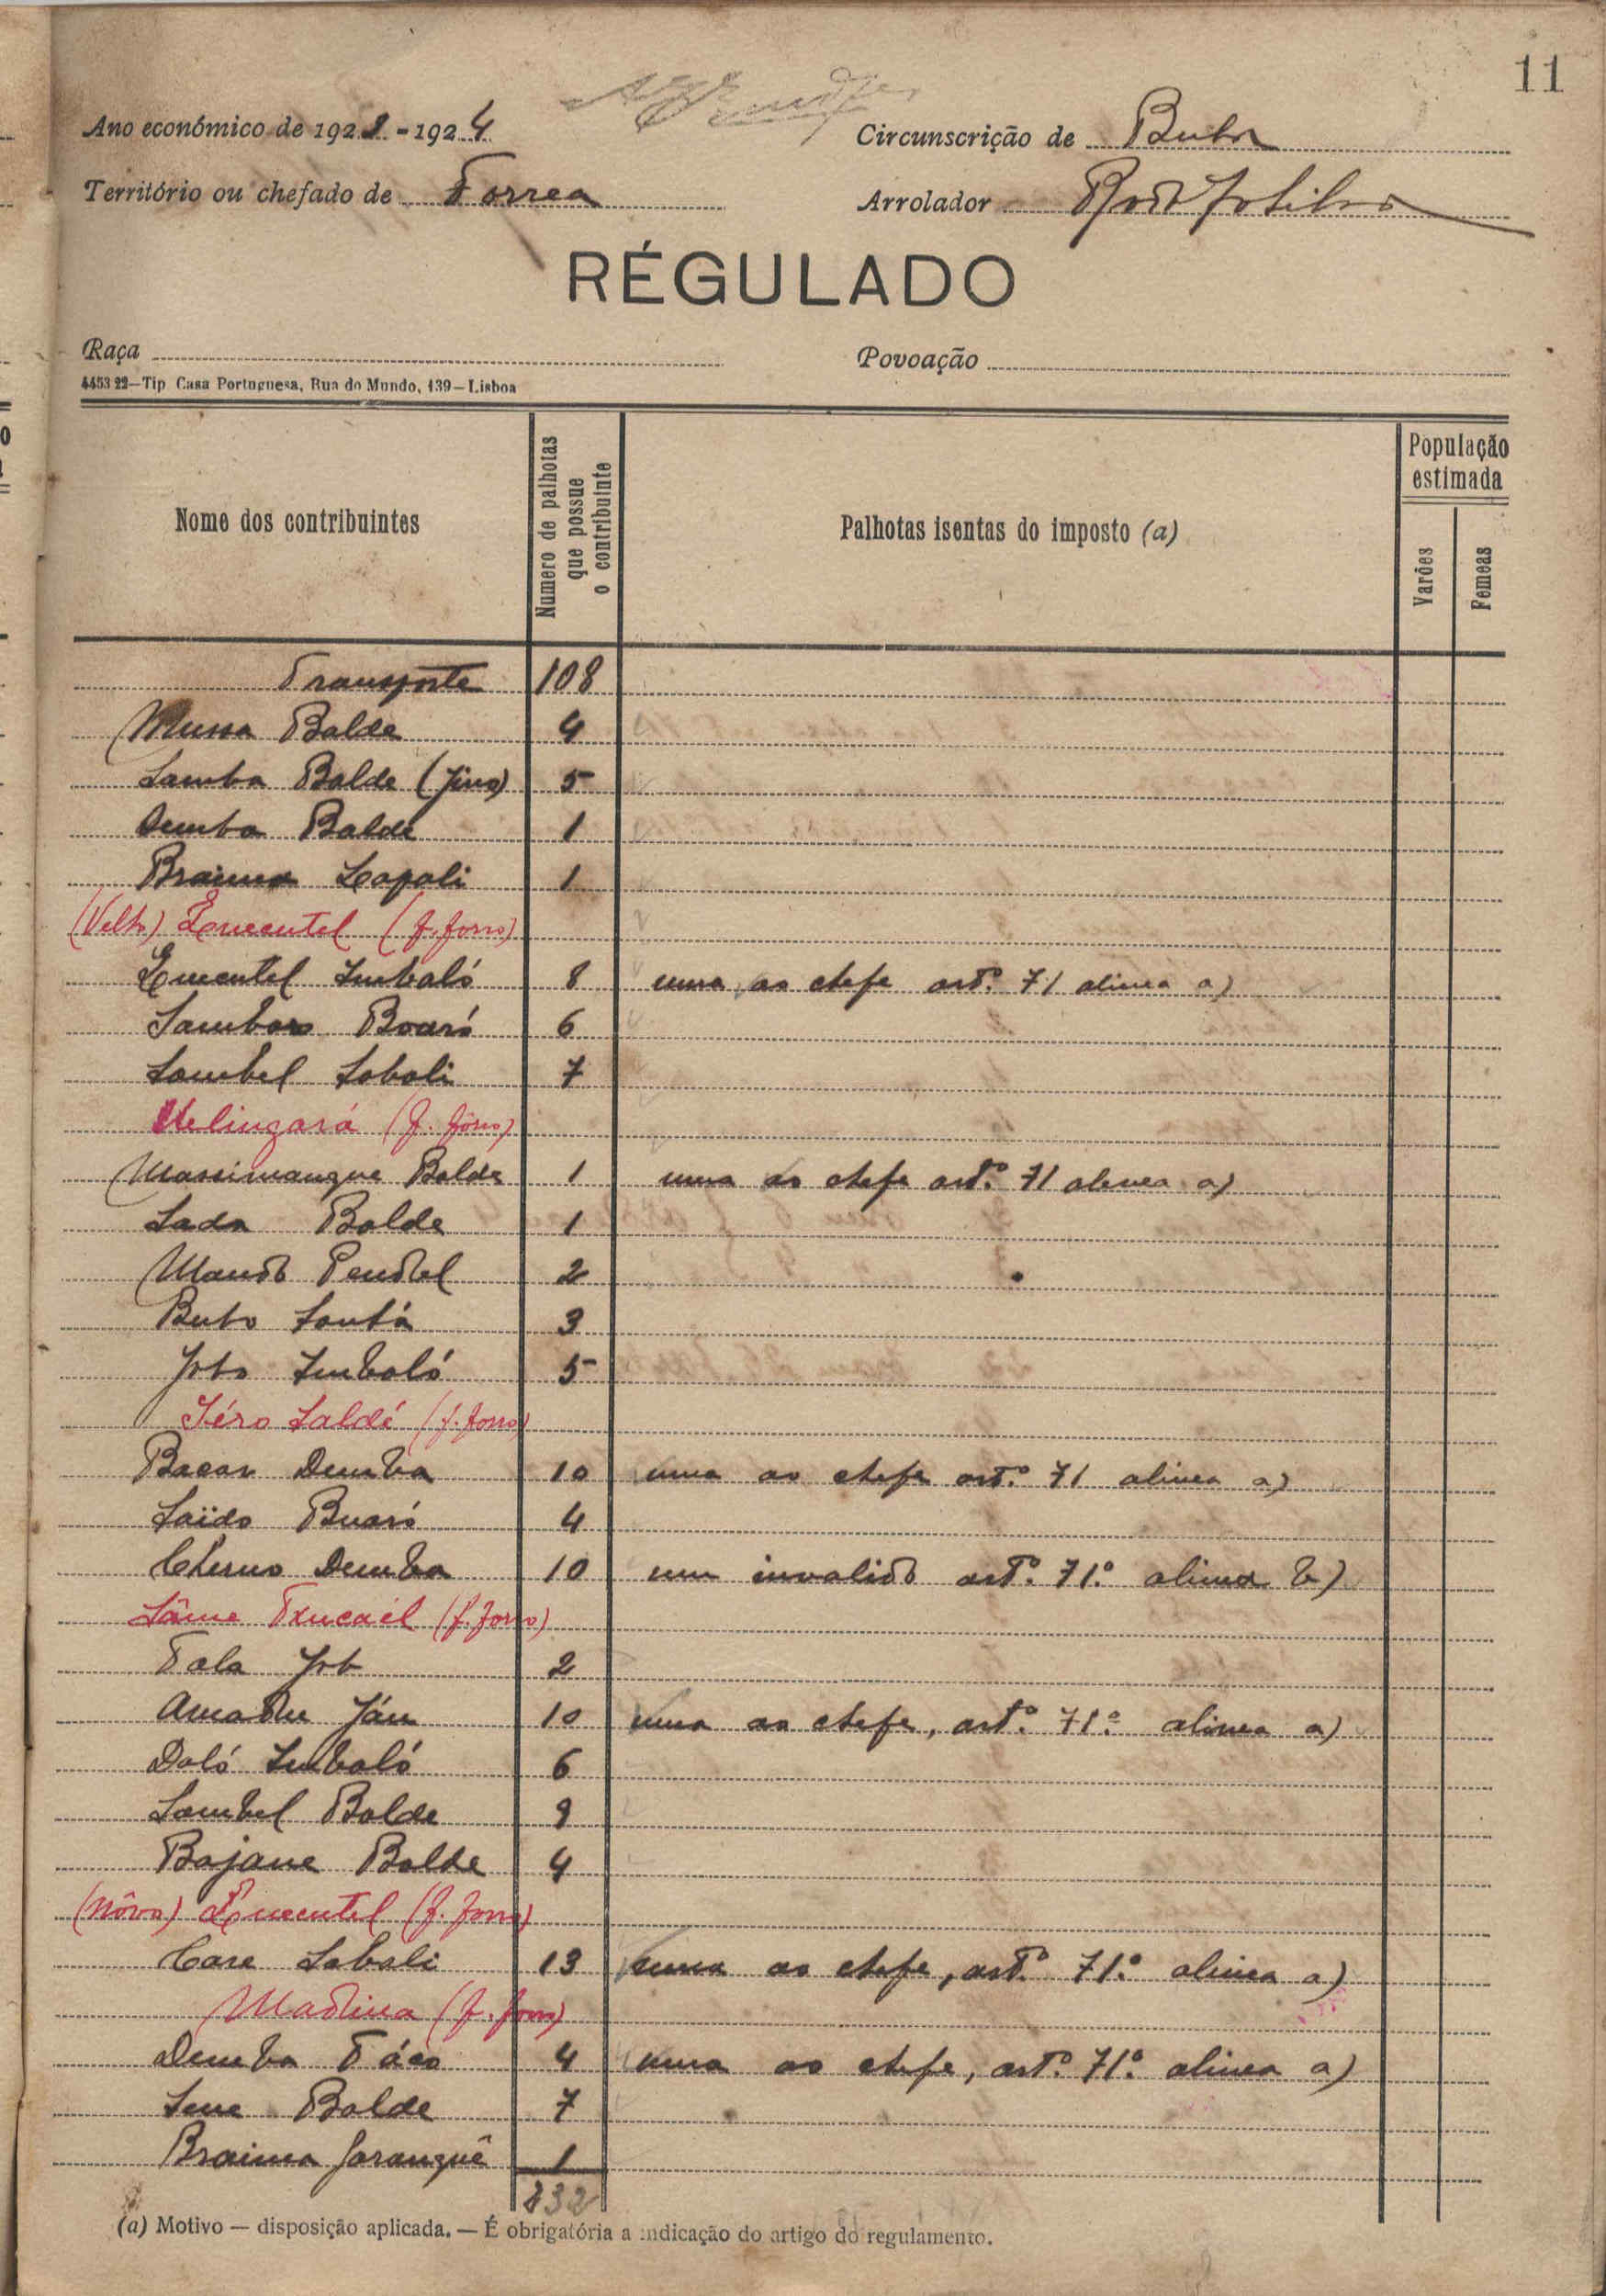 11
Ano económico de 1923-1924
Circunscrição de Buba
Território ou chefado de Forrea
Arrolador
RÉGULADO
Raça
Povoação
4453 22—Tip Casa Portuguesa, Rua do Mundo, 139—Lisboa
Nome dos contribuintes
Numero de palhotas que possue o contribuinte
Palhotas isentas do imposto (a)
População estimada
Varões
Femeas
Transporte 108
Mussa Balde 4
Samba Balde (Jino) 5
Demba Balde 1
Braima 1
(Velho) (f. forro)
Embaló 8 uma ao chefe artº. 71 alinea a)
Boaró 6
Sambel Sabali 7
Velingará (f. forro)
Balde 1 uma ao chefe artº. 71 alinea a)
Sada Balde 1
Pendel 2
Bubo 3
Jobo Embaló 5
Séro Saldé (f. forro)
Bacar Demba 10 uma ao chefe artº. 71 alinea a)
Saïdo Buaró 4
Cherno Demba 10 um invalido artº. 71.º alinea b)
(f. forro)
Tala Job 2
Amadu Jáu 10 uma ao chefe, artº. 71.º alinea a)
Doló Embaló 6
Sambel Balde 9
Bajane Balde 4
(Nôvo) (f. forro)
Care Sabali 13 uma ao chefe, artº. 71.º alinea a)
Madina (f. forro)
Demba 4 uma ao chefe, artº. 71.º alinea a)
Sene Balde 7
Braima 1
232
(a) Motivo — disposição aplicada. — É obrigatória a indicação do artigo do regulamento.